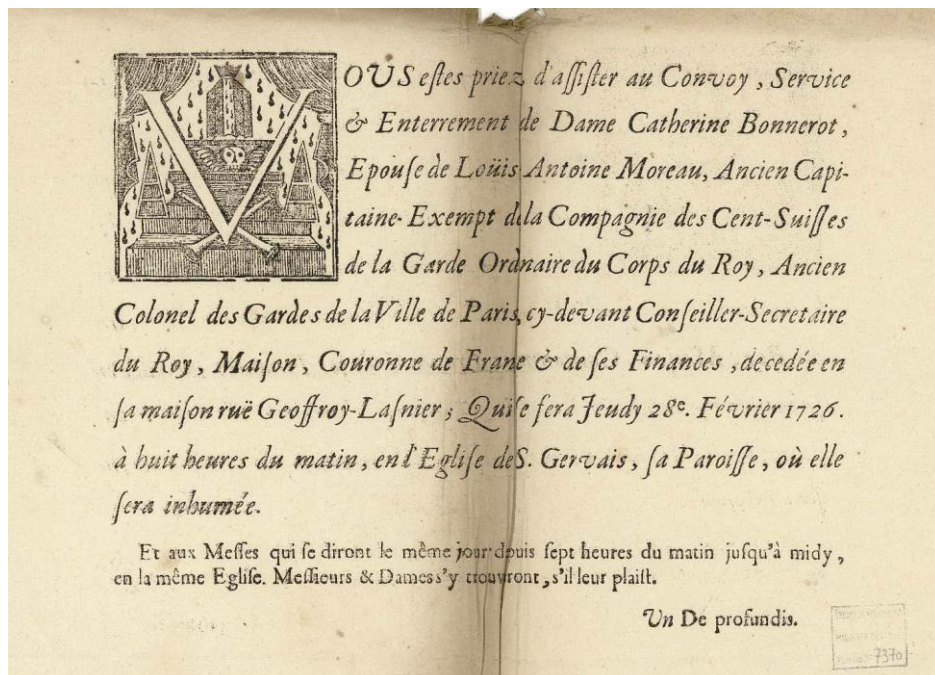 VOUS estes priez d'assister au Convoy, Service
& Enterrement de Dame Catherine Bonnerot,
Epouse de Loüis Antoine Moreau, Ancien Capi-
taine-Exempt de la Compagnie des Cent-Suisses
de la Garde Ordinaire du Corps du Roy, Ancien
Colonel des Gardes de la Ville de Paris, cy-devant Conseiller-Secretaire
du Roy, Maison, Couronne de France & de ses Finances, decedée en
sa maison ruë Geoffroy-Lasnier; Qui se fera Jeudy 28e. Février 1726.
à huit heures du matin, en l'Eglise de S. Gervais, sa Paroisse, où elle
sera inhumée.
Et aux Messes qui se diront le même jour depuis sept heures du matin jusqu'à midy,
en la même Eglise. Messieurs & Dames s'y trouveront, s'il leur plaist.
Un De profundis.
7370